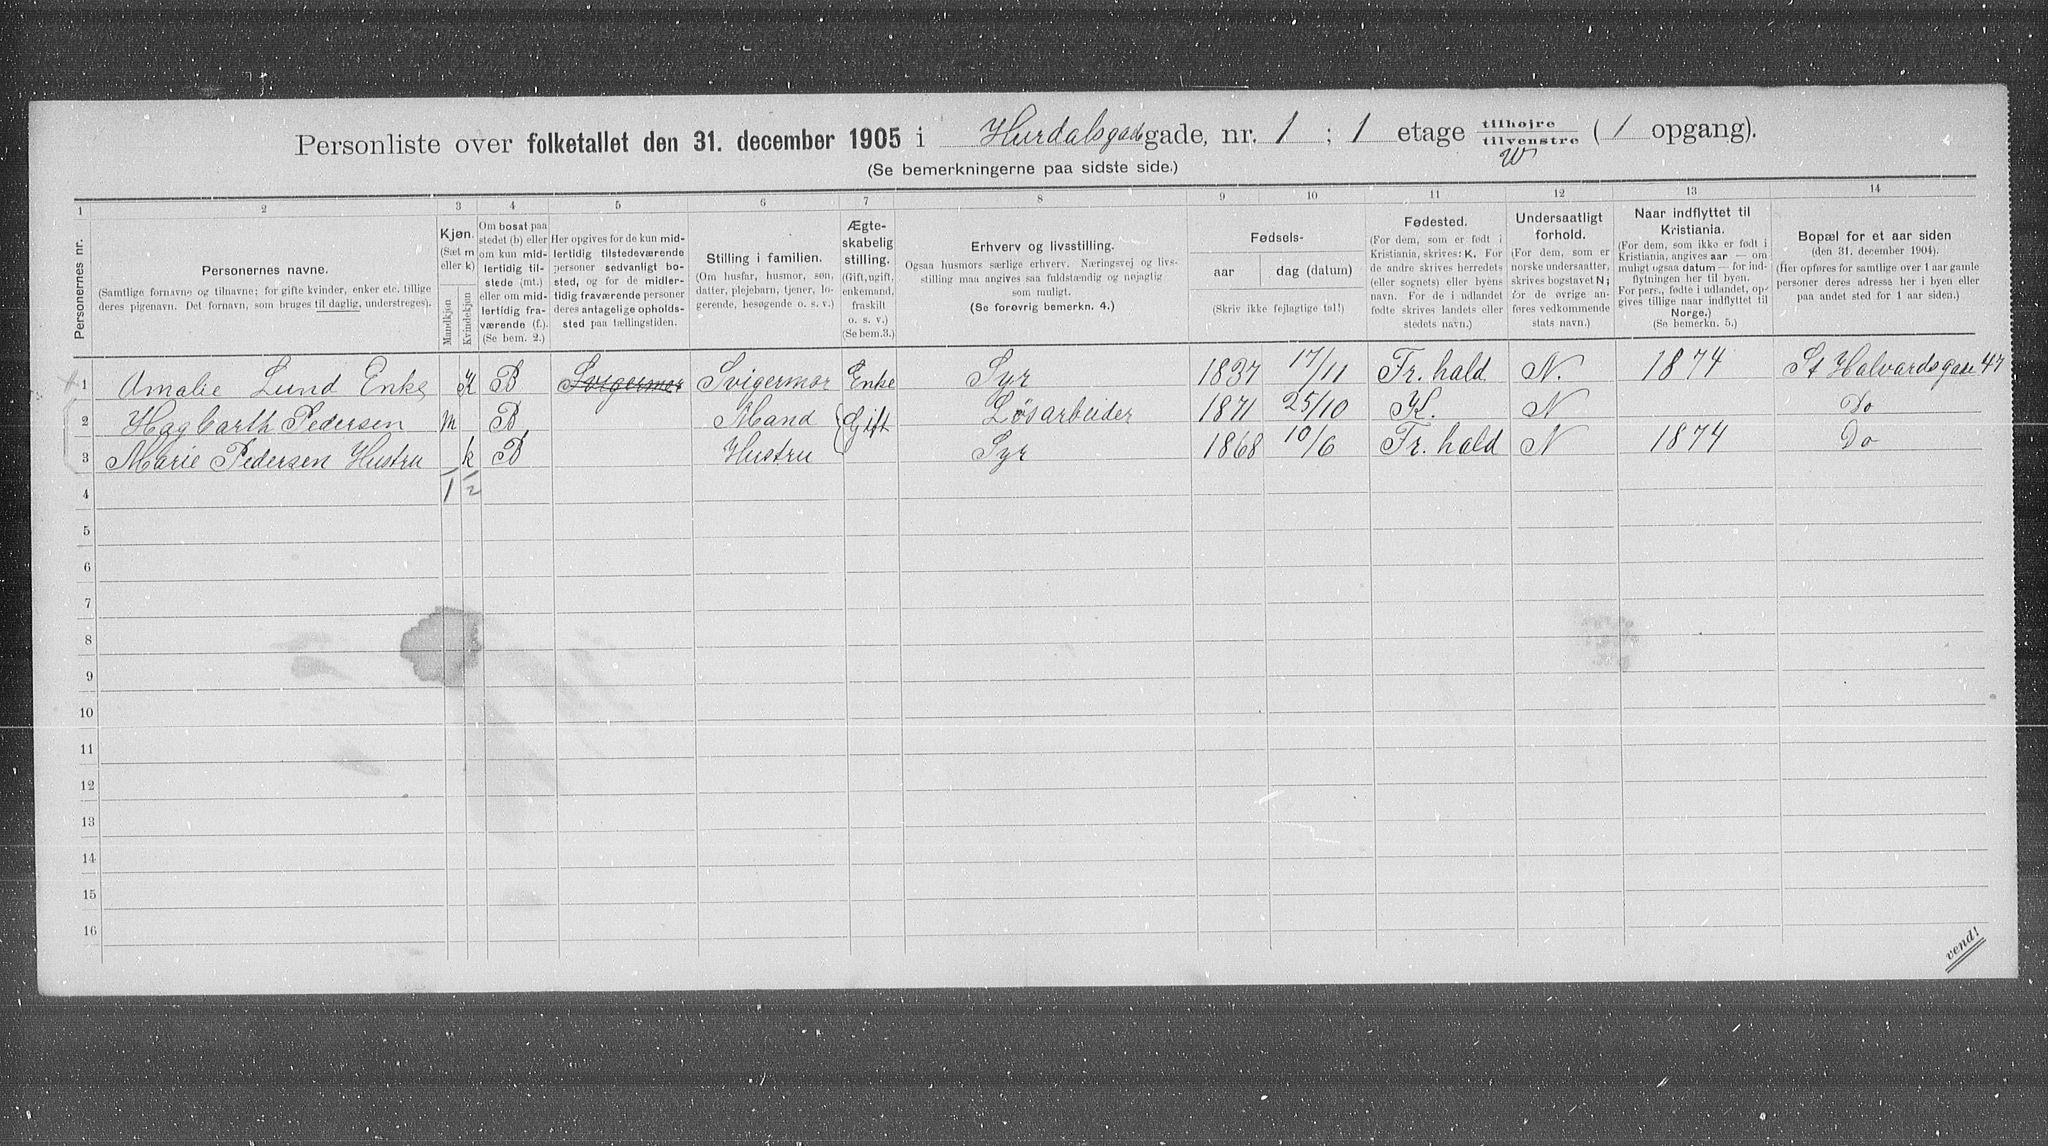 Personliste over folketallet den 31. december 1905 i Hurdalsgade gade, nr. 1 ; 1 etage tilhøjre tilvenstre ( 1 opgang).
(Se bemerkningerne paa sidste side.)
1 2 3 4 5 6 7 8 9 10 11 12 13 14
Personernes nr.
Personernes navne.
(Samtlige fornavne og tilnavne; for gifte kvinder, enker etc. tillige
deres pigenavn. Det fornavn, som bruges til daglig, understreges).
Kjøn.
(Sæt m
eller k)
Mandkjøn
Kvindekjøn
Om bosat paa
stedet (b) eller
om kun mid-
lertidig til-
stede (mt.)
eller om mid-
lertidig fra-
værende (f.).
(Se bem. 2.)
Her opgives for de kun mid-
lertidig tilstedeværende
personer sedvanligt bo-
sted, og for de midler-
tidig fraværende personer
deres antagelige opholds-
sted paa tællingstiden.
Stilling i familien.
(Om husfar, husmor, søn,
datter, plejebarn, tjener, lo-
gerende, besøgende o. s. v.)
Ægte-
skabelig
stilling.
(Gift, ugift,
enkemand,
fraskilt
o. s. v.)
(Se bem. 3.)
Erhverv og livsstilling.
Ogsaa husmors særlige erhverv. Næringsvej og livs-
stilling maa angives saa fuldstændig og nøjagtig
som muligt.
(Se forøvrig bemerkn. 4.)
Fødsels-
aar dag (datum)
(Skriv ikke fejlagtige tal!)
Fødested.
(For dem, som er født i
Kristiania, skrives: K. For
de andre skrives herredets
(eller sognets) eller byens
navn. For de i udlandet
fødte skrives landets eller
stedets navn.)
Undersaatligt
forhold.
(For dem, som er
norske undersaatter,
skrives bogstavet N;
for de øvrige an-
føres vedkommende
stats navn.)
Naar indflyttet til
Kristiania.
(For dem, som ikke er født i
Kristiania, angives aar — om
muligt ogsaa datum — for ind-
flytningen her til byen.
For pers., fødte i udlandet, op-
gives tillige naar indflyttet til
Norge.)
(Se bemerkn. 5.)
Bopæl for et aar siden
(den 31. december 1904).
(Her opføres for samtlige over 1 aar gamle
personer deres adresse her i byen eller
paa andet sted for 1 aar siden.)
1 Amalie Lund Enke K B Svigermor Svigermor Enke Syr 1837 17/11 Fr. hald N. 1874 St Halvardsgade 47
2 Hagbarth Pedersen m B Mand Gift Løsarbeider 1871 25/10 K. N Do
3 Marie Pedersen Hustru k B Hustru Syr 1868 10/6 Fr. hald N 1874 Do
4 1 2
5
6
7
8
9
10
11
12
13
14
15
16
vend!